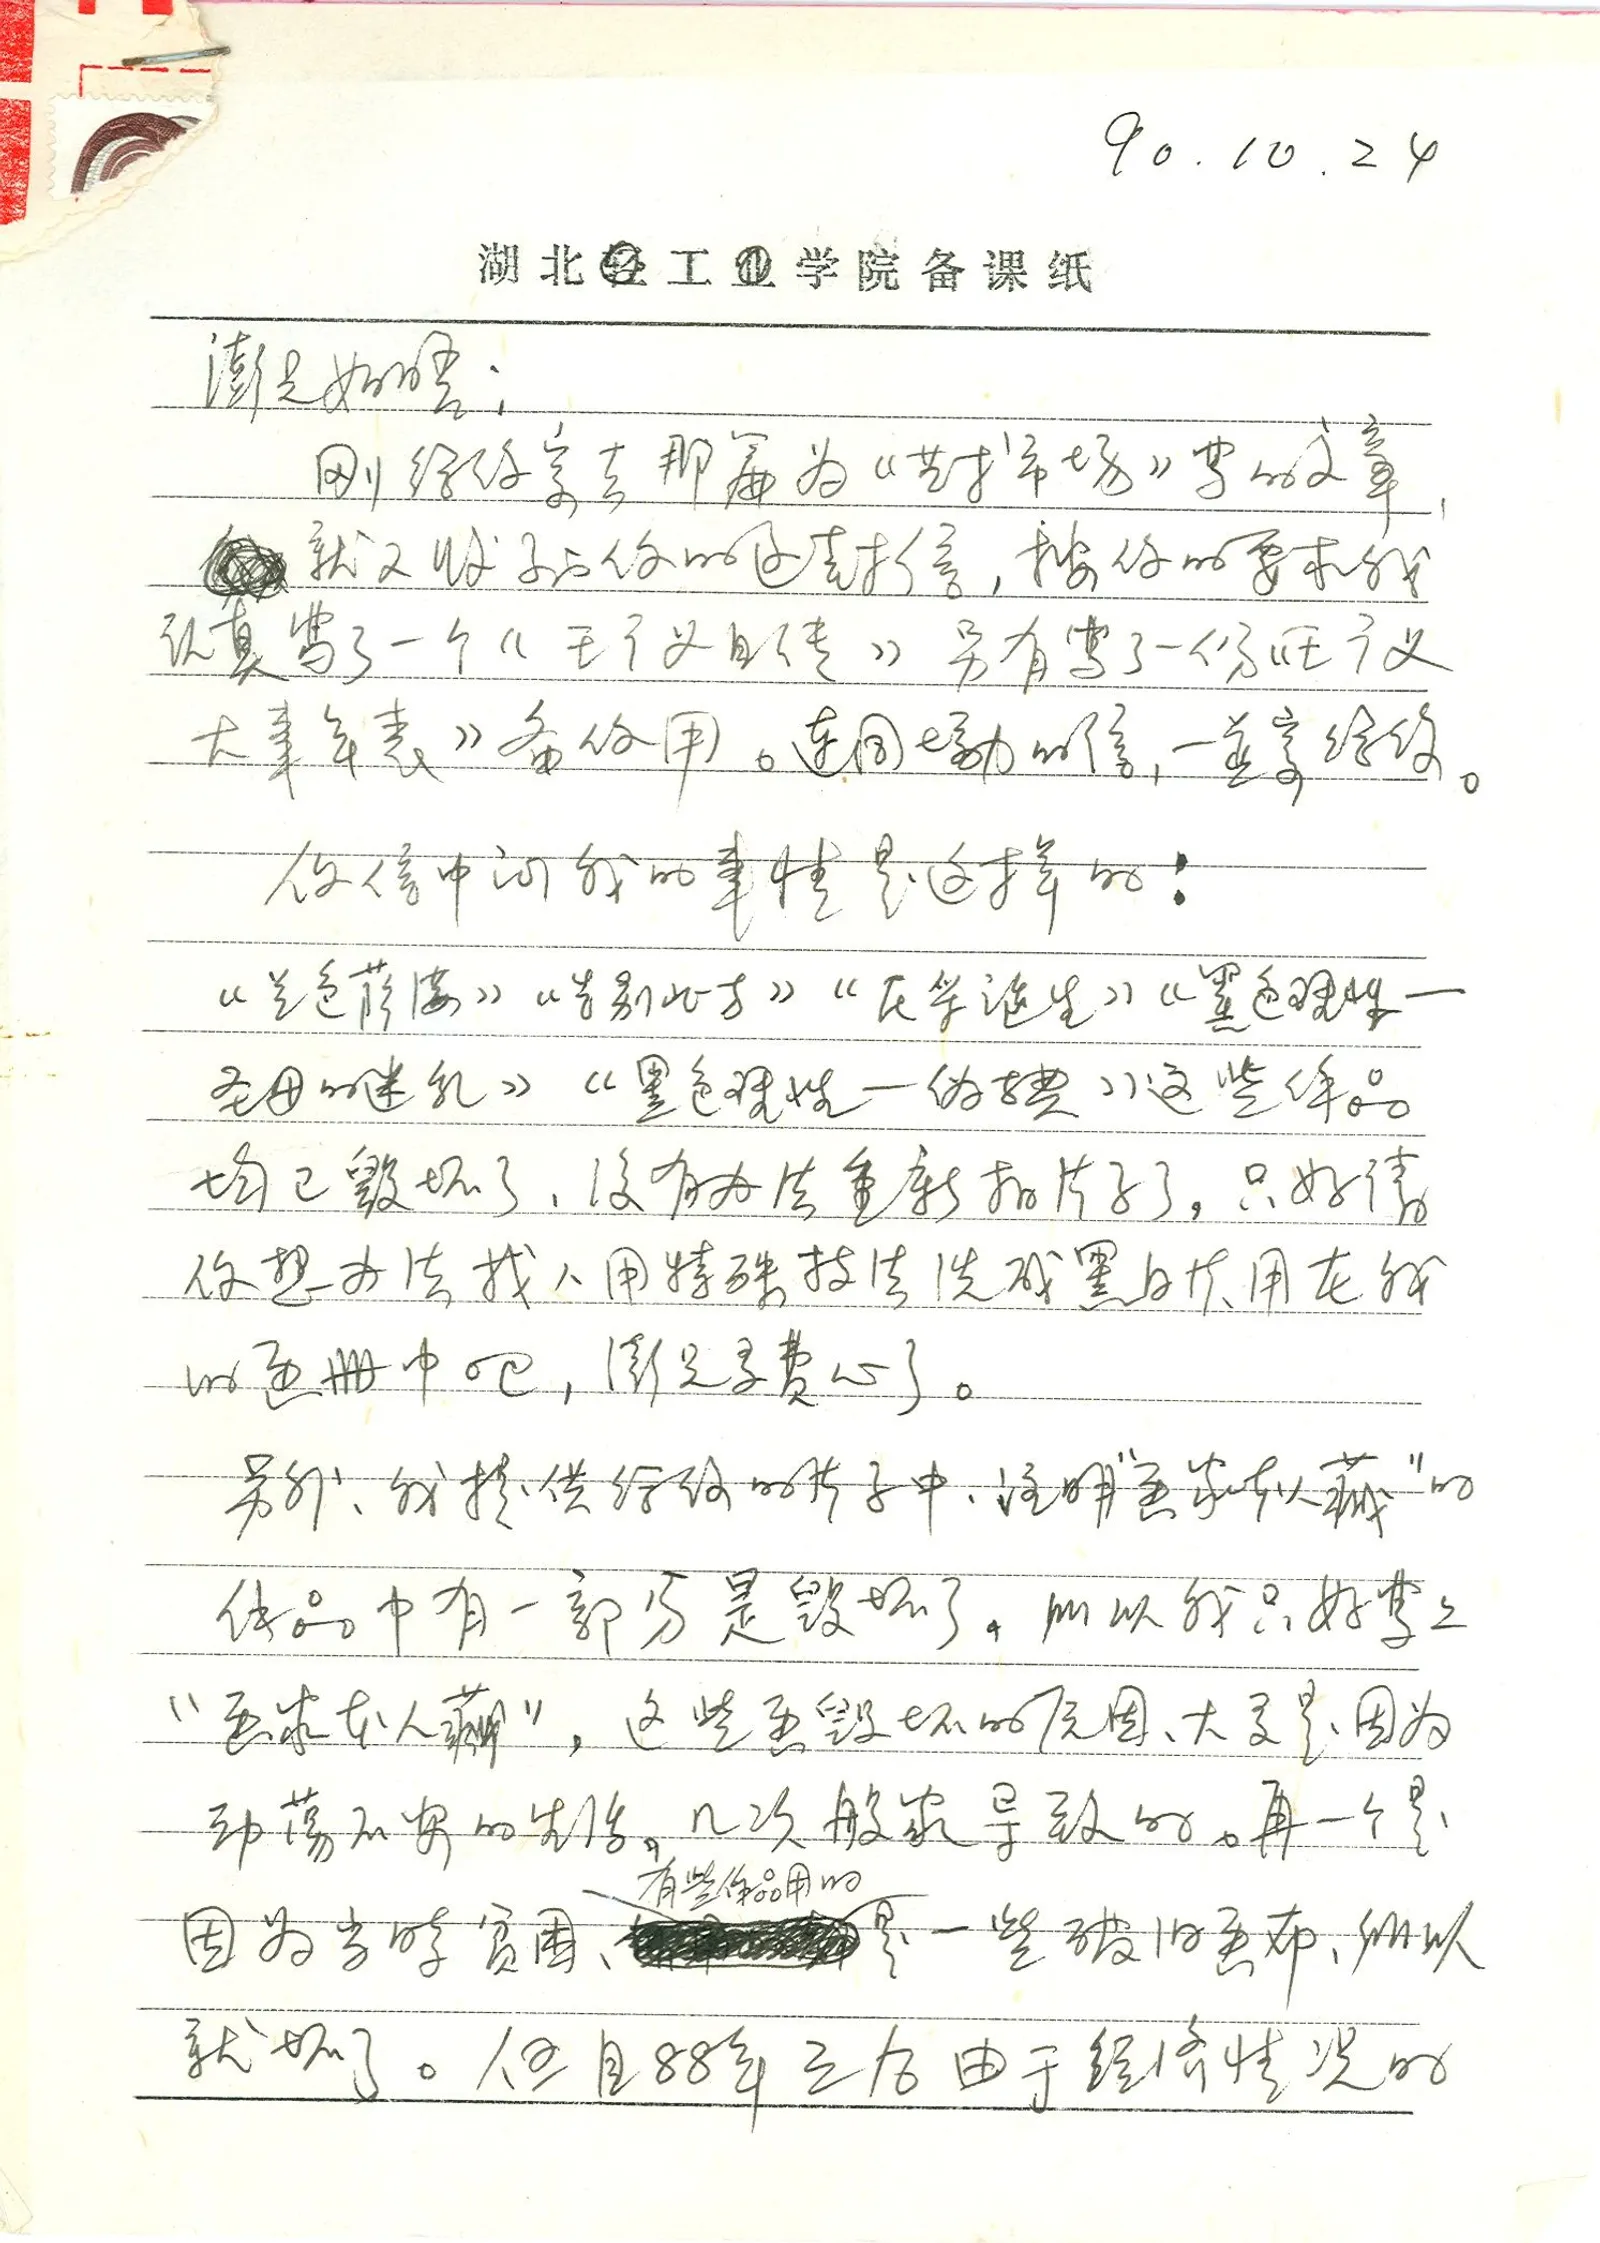 90.10.24
湖北轻工业学院备课纸
澎兄如晤：
刚给你寄去那篇为《艺术市场》写的文章，
就又收到了你的这封信，按你的要求我
认真写了一个《王广义自传》另有写了一份《王广义
大事年表》备你用。连同的信，一并寄给你。
你信中问我的事情是这样的：
《兰色》《告别北方》《在学诞生》《黑色理性—
圣母的哺乳》《黑色理性—伪典》这些作品
均已毁坏了、没有办法重新拍片子了。只好请
你想办法找人用特殊技法洗成黑白片用在我
的画册中吧，澎兄多费心了。
另外、我提供给你的片子中、注明“画家本人藏”的
作品中有一部分是毁坏了。所以我只好写上
“画家本人藏”，这些画毁坏的原因、大多是因为
动荡不安的生活。几次般家导致的。再一个是
因为当时贫困、有些作品用的是一些破旧画布、所以
就坏了。但自88年之后由于经济情况的